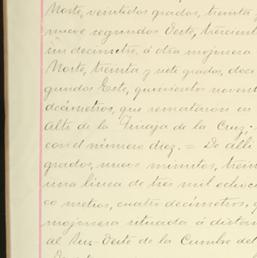 Norte, veintidos grados, treinta y
nueve segundos Oeste, trescient
un decimetro, á otra mojonera
Norte, treinta y siete grados, doce
gundos Este, quinientos novent
decámetros, que remataron en
alto de la Tinaja de la Cruz;
con el número diez. = De allí
grados, nueve minutos, trein
una línea de tres mil ochoci
co metros, cuatro decímetros,
mojonera situada á distan
al Sur-Oeste de la Cumbre del